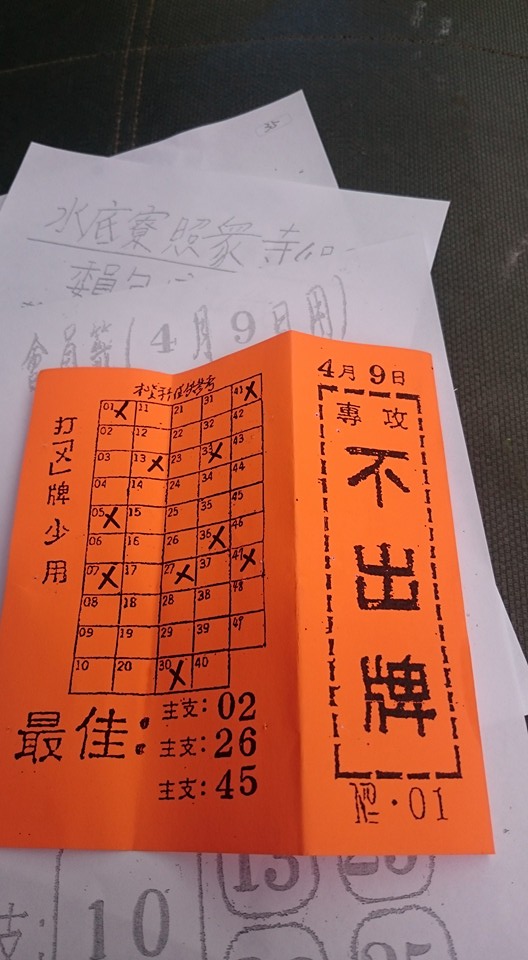 35
水底寮照眾寺
委員
會員籌(4月9日用)
4月9日
專攻
不出牌
№·01
打「X」牌少用
01 11 21 31 41
02 12 22 32 42
03 13 23 33 43
04 14 24 34 44
05 15 25 35 45
06 16 26 36 46
07 17 27 37 47
08 18 28 38 48
09 19 29 39 49
10 20 30 40
最佳:
主支:02
主支:26
主支:45
支:
10
13
25